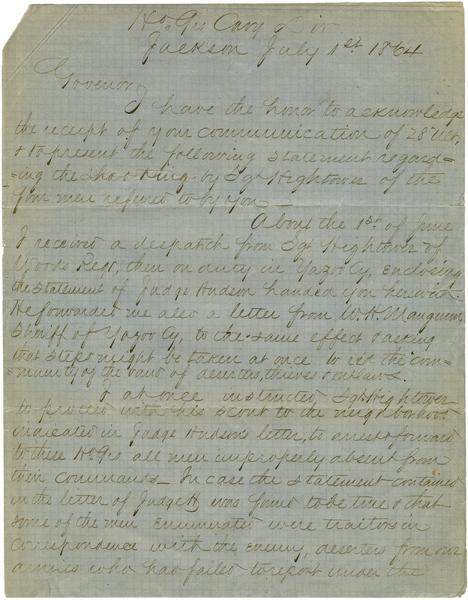 Hd Qrs Cavy Div
Jackson July 1st 1864
Governor,
I have the honor to acknowledge
the receipt of your communication of 28" ult,
& to present the following statement regard-
=ing the shooting by Sgt Hightower of the
four men refered to by you —
About the 1st of June
I received a despatch from Sgt Hightower of
Woods Regt, then on duty in Yazoo Cy, enclosing
the statement of Judge Hudson handed you herewith.
He forwarded me also a letter from W. H. Mangum
Sheriff of Yazoo Cy, to the same effect & asking
that steps might be taken at once to rid the com-
=munity of the band of deserters, thieves & outlaws.
I at once instructed Sgt Hightower
to proceed with his scout to the neighborhood
indicated in Judge Hudson's letter, to arrest & forward
to these Hd Qrs all men improperly absent from
their commands — In case the statement contained
in the letter of Judge H was found to be true & that
some of the men enumerated were traitors in
correspondence with the enemy, deserters from our
armies who had failed to report under the